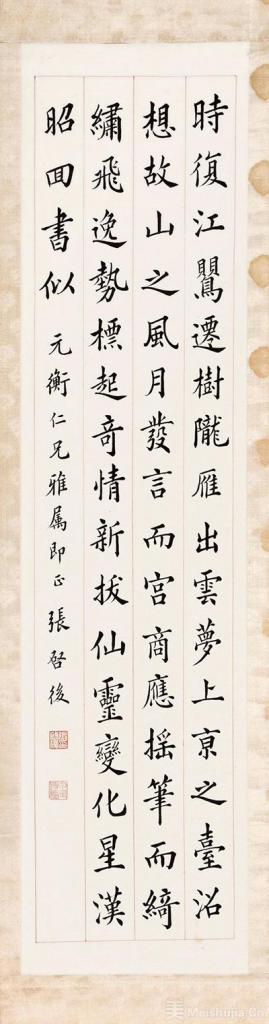 時復江鸎遷樹隴雁出雲夢上京之臺沼
想故山之風月發言而宮商應揺筆而綺
繡飛逸勢標起奇情新拔仙靈變化星漢
昭回書似
元衡仁兄雅属即正張啓後
美 Meishujia.Cn